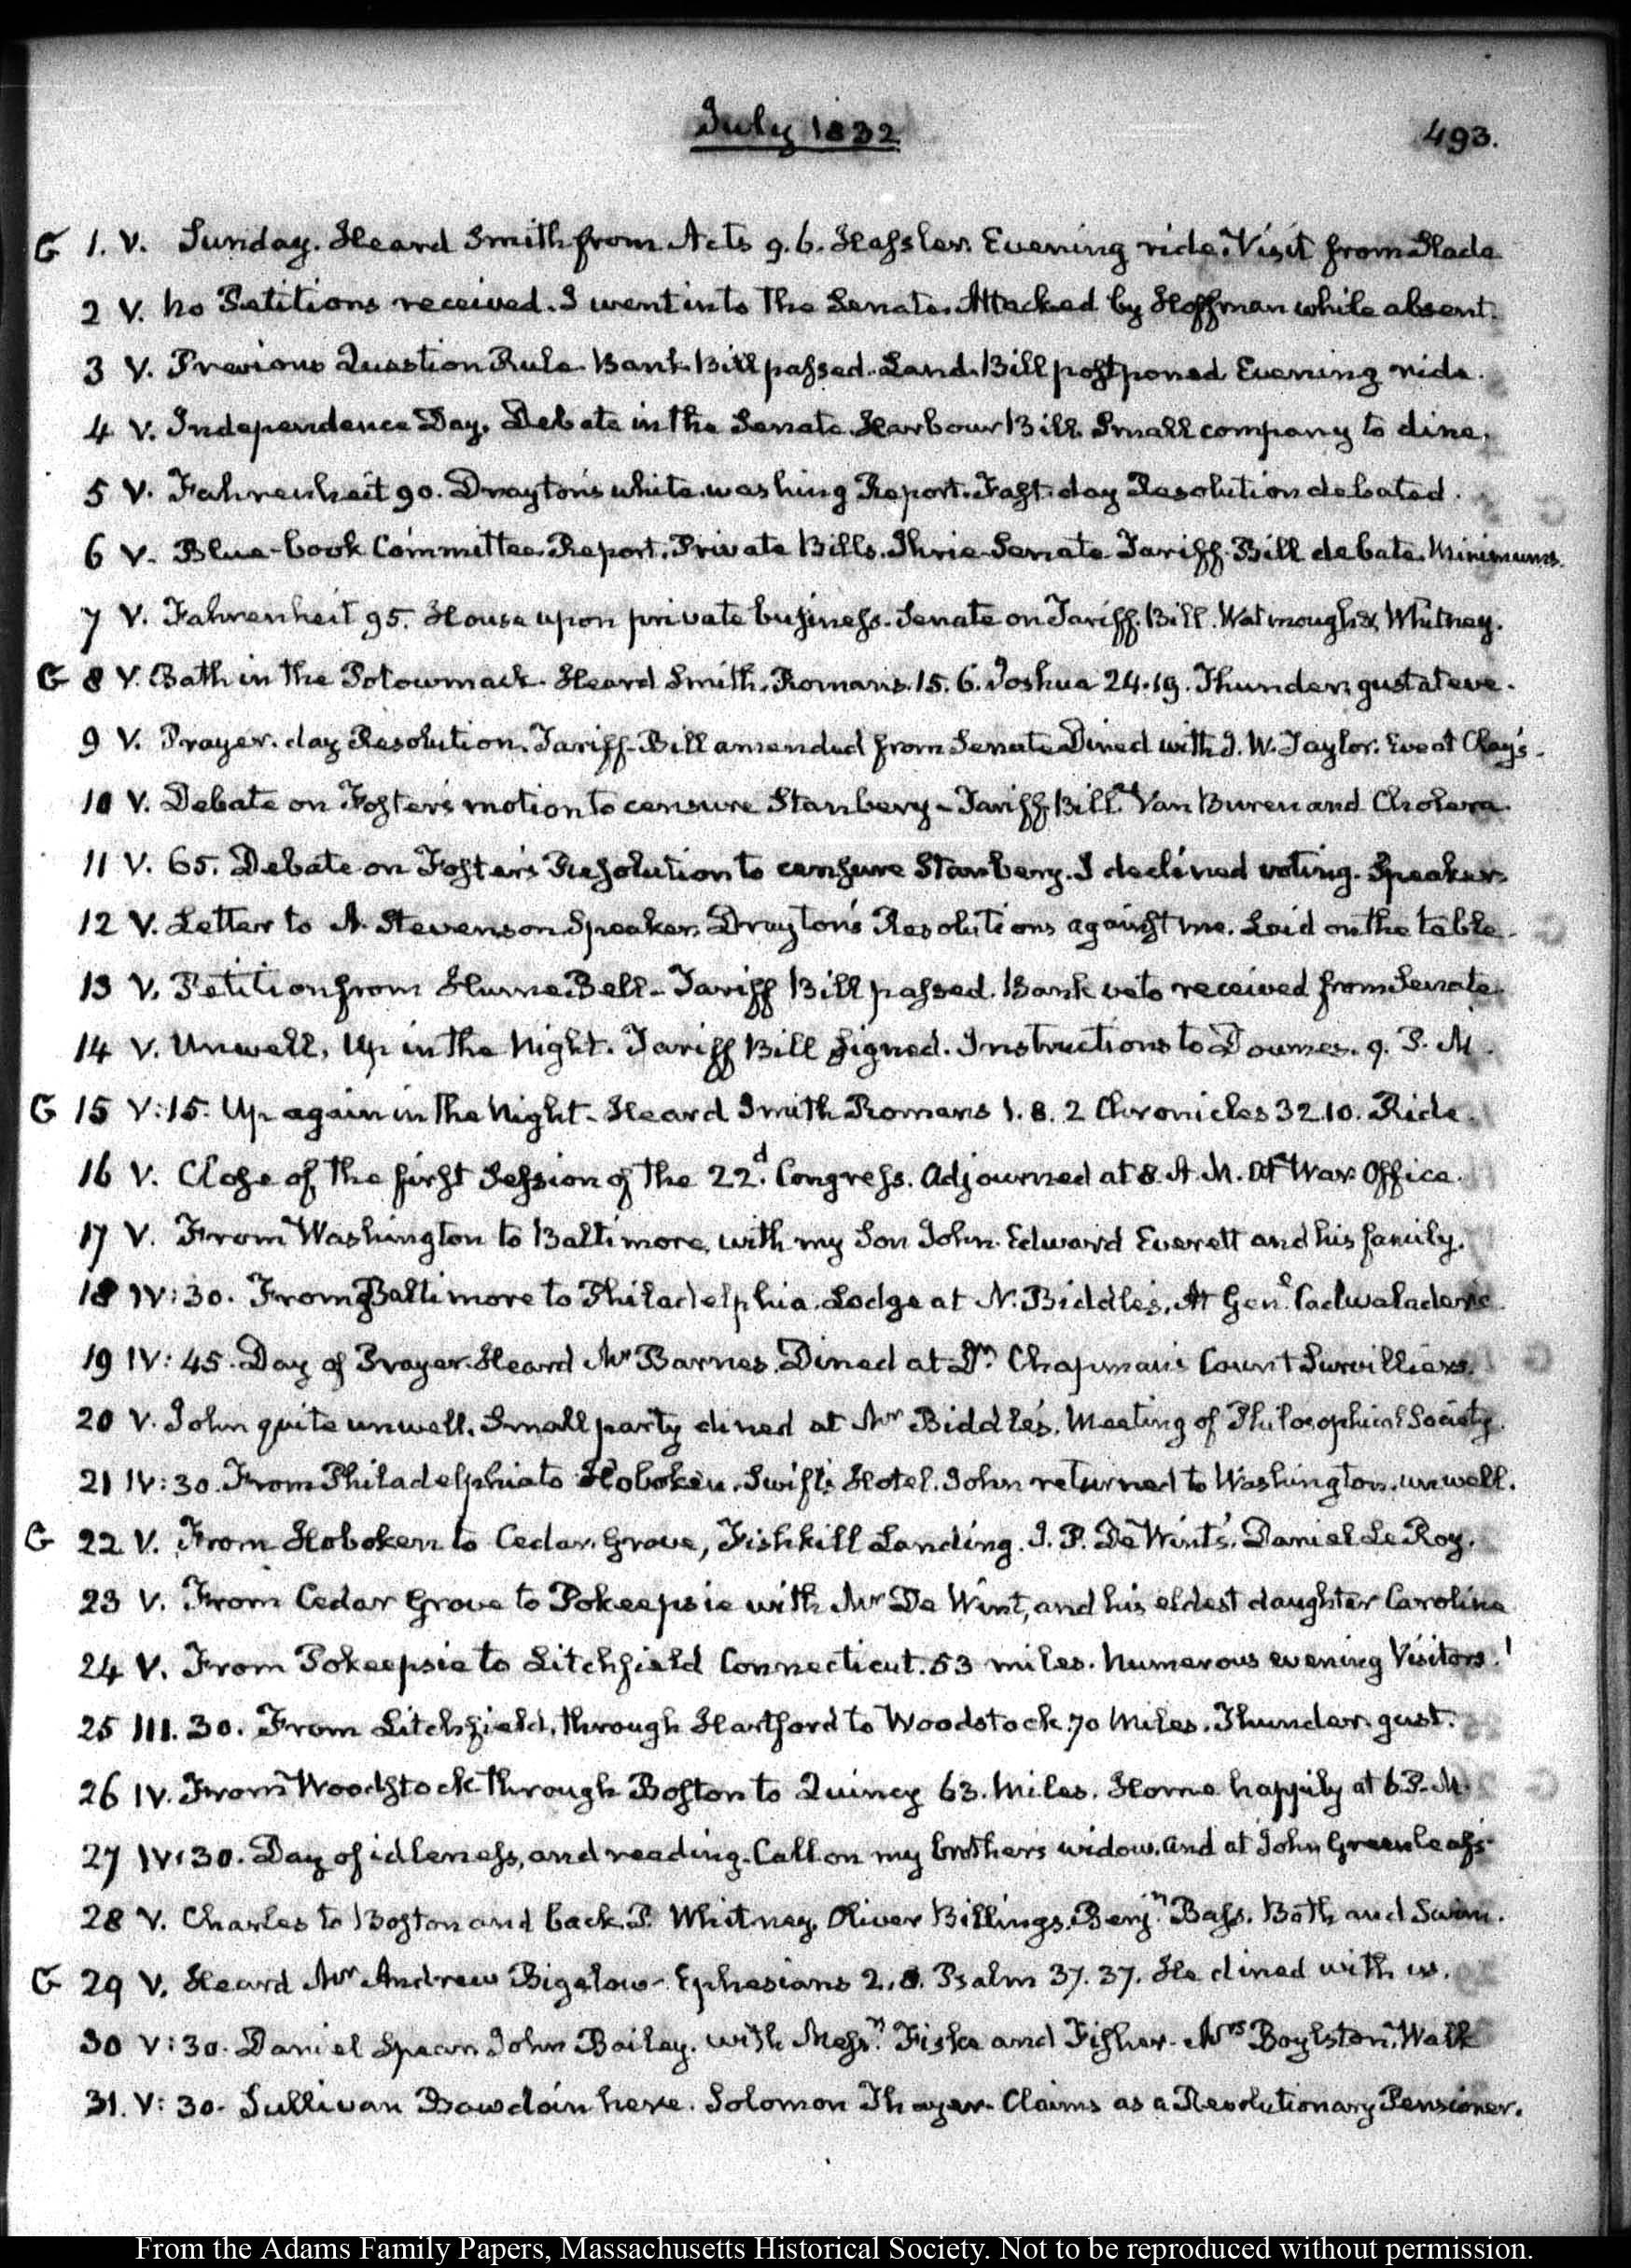 July 1832
493.
G 1. V. Sunday. Heard Smith from Acts 9. 6. Hassler. Evening ride. Visit from Slade
2 V. No Petitions received. I went into the Senate. Attacked by Hoffman while absent.
3 V. Previous Question Rule. Bank Bill passed. Land Bill postponed Evening ride.
4 V. Independence Day. Debate in the Senate. Harbour Bill. Small company to dine.
5 V. Fahrenheit 90. Drayton's white-washing Report. Fast day Resolution debated.
6 V. Blue-book Committee Report. Private Bills. Senate Tariff Bill debate. Minimums.
7 V. Fahrenheit 95. House upon private business. Senate on Tariff Bill. Watmough & Whitney.
G 8 V. Bath in the Potowmack. Heard Smith. Romans. 15. 6. Joshua 24. 19. Thunder gust at eve.
9 V. Prayer-day Resolution. Tariff-Bill amended from Senate Dined with J. W. Taylor. Eve at Clay's.
10 V. Debate on Foster's motion to censure Stanbery – Tariff Bill. Van Buren and Cholera.
11 V. 65. Debate on Foster's Resolution to censure Stanbery. I declined voting. Speaker.
12 V. Letter to A. Stevenson Speaker. Drayton's Resolutions against me. Laid on the table.
13 V. Petition from Hume Bell – Tariff Bill passed. Bank veto received from Senate.
14 V. Unwell, Up in the Night. Tariff Bill signed. Instructions to Downes. 9. P. M.
G 15 V: 15. Up again in the Night – Heard Smith Romans 1. 8. 2 Chronicles 32. 10. Ride.
16 V. Close of the first Session of the 22d. Congress. Adjourned at 8. A. M. At War Office.
17 V. From Washington to Baltimore, with my Son John. Edward Everett and his family.
18 IV: 30. From Baltimore to Philadelphia. Lodge at N. Biddle's. At Genl. Cadwalader's.
19 IV: 45. Day of Prayer. Heard Mr Barnes. Dined at Dr. Chapman's Count Survilliers.
20 V. John quite unwell. Small party dined at Mr Biddle's. Meeting of Philosophical Society.
21 IV: 30. From Philadelphia to Hoboken. Swift's Hotel. John returned to Washington, unwell.
G 22 V. From Hoboken to Cedar Grove, Fishkill Landing. J. P. De Wint's. Daniel Le Roy.
23 V. From Cedar Grove to Pokeepsie with Mr De Wint, and his eldest daughter Caroline
24 V. From Pokeepsie to Litchfield Connecticut. 53 miles. Numerous evening Visitors.
25 III. 30. From Litchfield, through Hartford to Woodstock 70 Miles. Thunder gust.
26 IV. From Woodstock through Boston to Quincy 63. Miles. Home happily at 6 P. M.
27 IV: 30. Day of idleness, and reading. Call on my brother's widow, and at John Greenleaf's
28 V. Charles to Boston and back. P. Whitney, Oliver Billings. Benjn. Bass. Bath and Swim.
G 29 V. Heard Mr Andrew Bigelow – Ephesians 2. 8. Psalm 37. 37. He dined with us.
30 V: 30. Daniel Spear. John Bailey, with Messrs. Fiske and Fisher. Mrs Boylston. Walk
31. V: 30. Sullivan Bowdoin here. Solomon Thayer. Claims as a Revolutionary Pensioner.
From the Adams Family Papers, Massachusetts Historical Society. Not to be reproduced without permission.